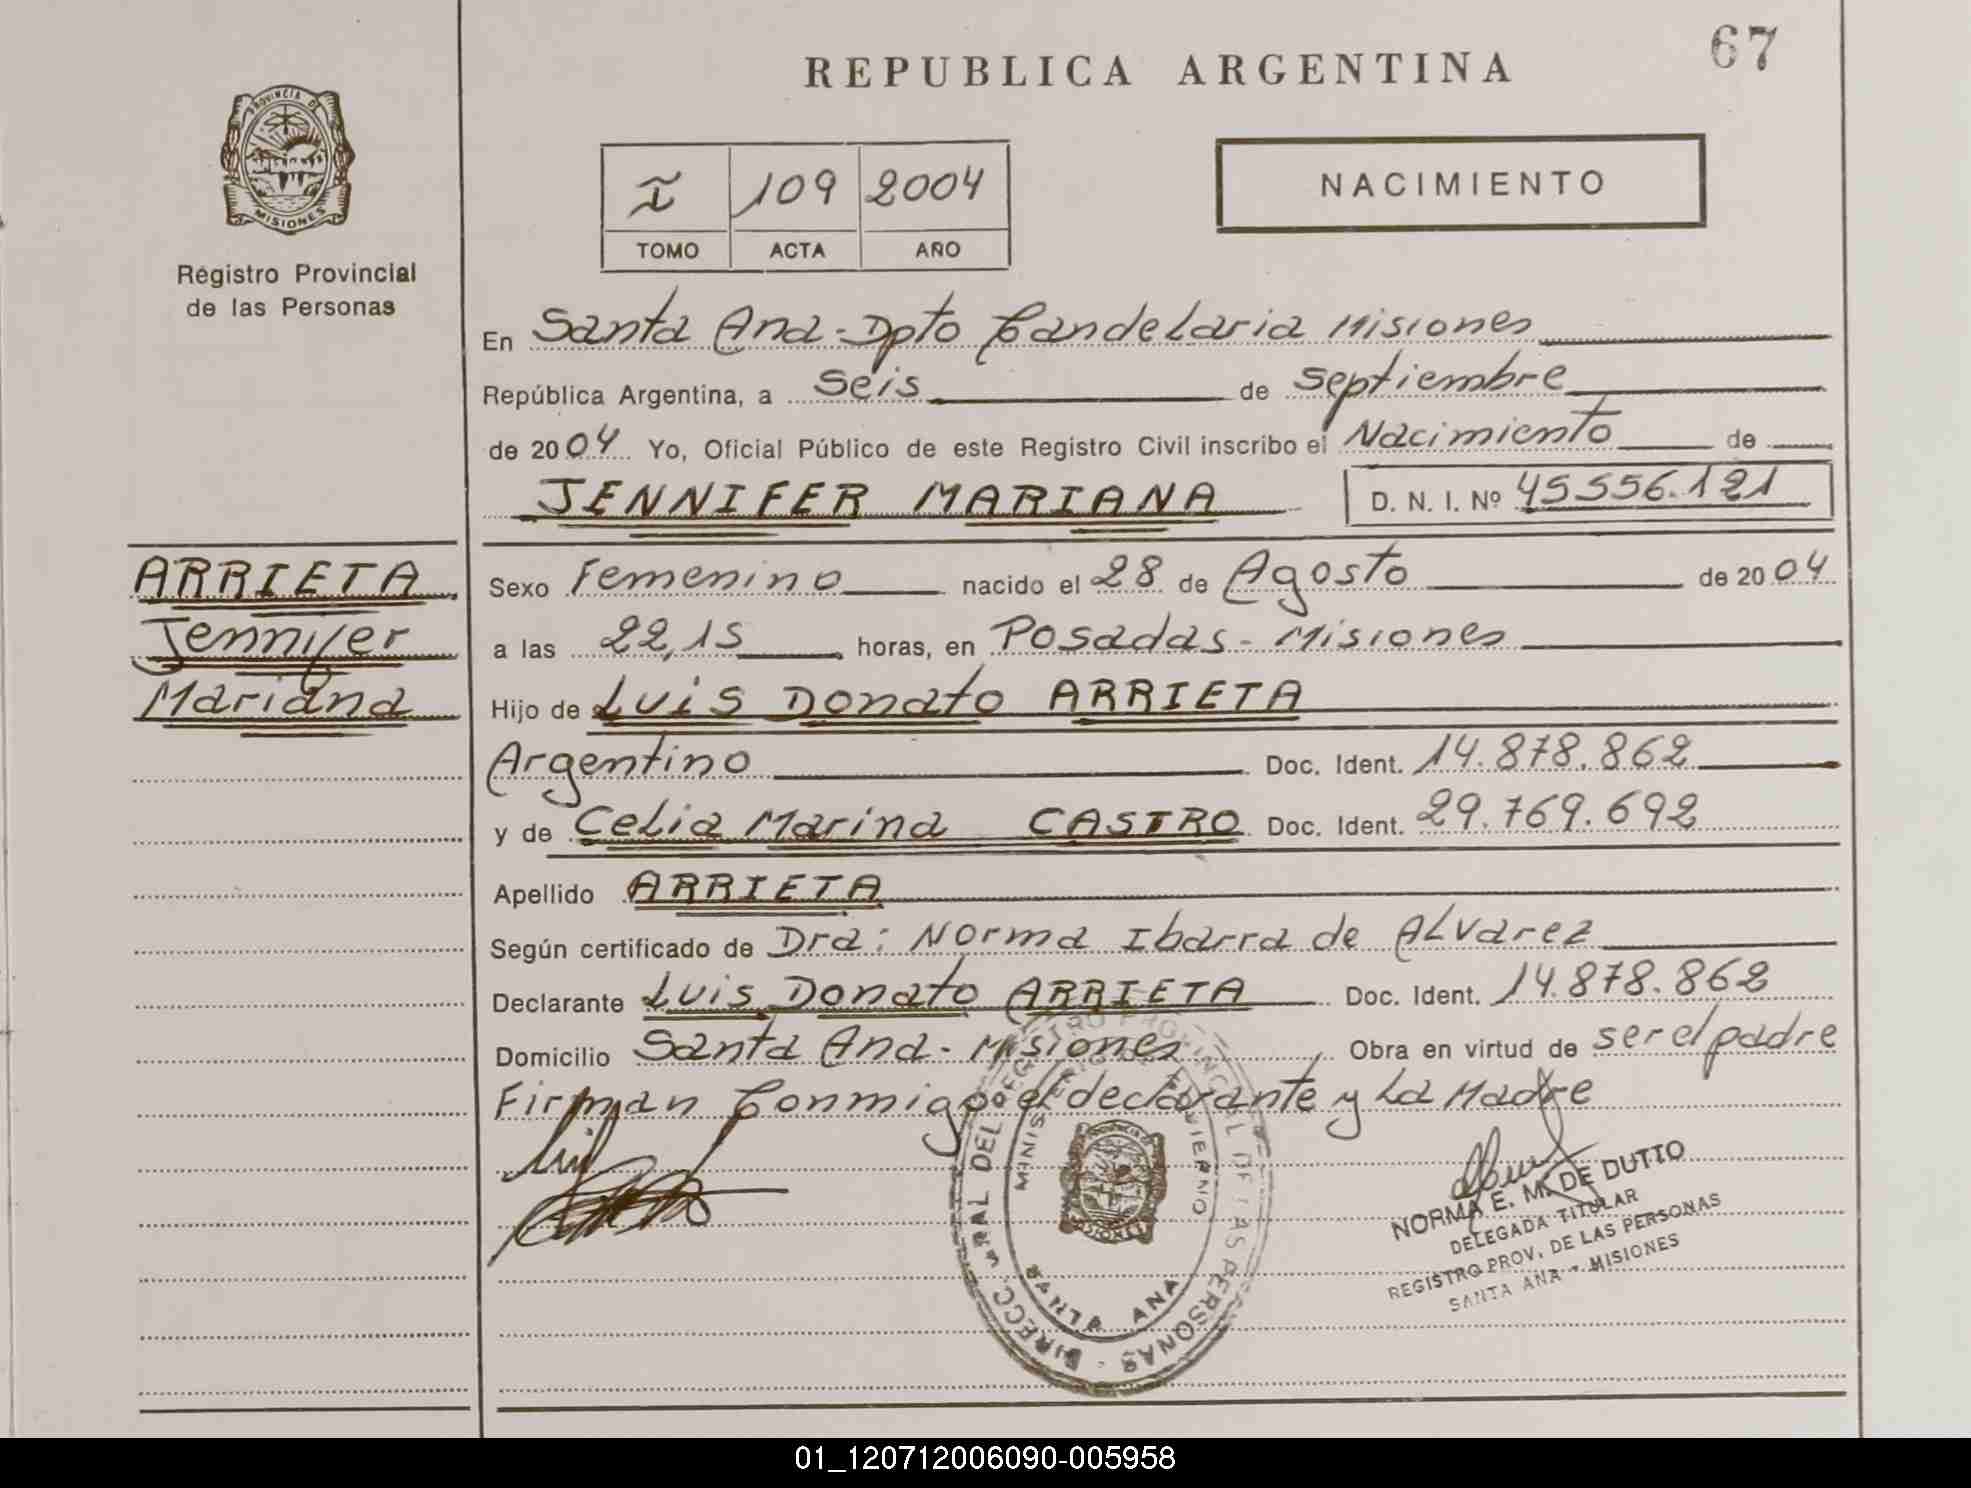 67
REPUBLICA ARGENTINA
PROVINCIA DE
MISIONES
Registro Provincial
de las Personas
I 109 2004
TOMO ACTA AÑO
NACIMIENTO
En Santa Ana - Dpto Candelaria Misiones
República Argentina, a Seis de Septiembre
de 2004 Yo, Oficial Público de este Registro Civil inscribo el Nacimiento de
JENNIFER MARIANA D. N. I. Nº 45556.121
ARRIETA
Jennifer
Mariana
Sexo Femenino nacido el 28 de Agosto de 2004
a las 22,15 horas, en Posadas - Misiones
Hijo de Luis Donato ARRIETA
Argentino Doc. Ident. 14.878.862
y de Celia Marina CASTRO Doc. Ident. 29.769.692
Apellido ARRIETA
Según certificado de Dra: Norma Ibarra de Alvarez
Declarante Luis Donato ARRIETA Doc. Ident. 14.878.862
Domicilio Santa Ana - Misiones Obra en virtud de ser el padre
Firman Conmigo el declarante y La Madre
MINISTERIO DE GOBIERNO
SANTA ANA
NORMA E. M. DE DUTTO
DELEGADA TITULAR
REGISTRO PROV. DE LAS PERSONAS
SANTA ANA - MISIONES
01_120712006090-005958